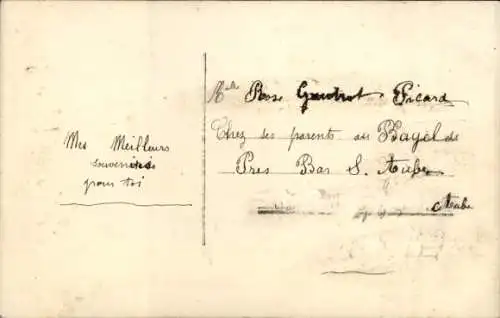 Mes Meilleurs
souvenirs
pour toi
Mlle Rose Picard
Chez ses parents au Bayel de
Pres Bar S. Aube
Aube